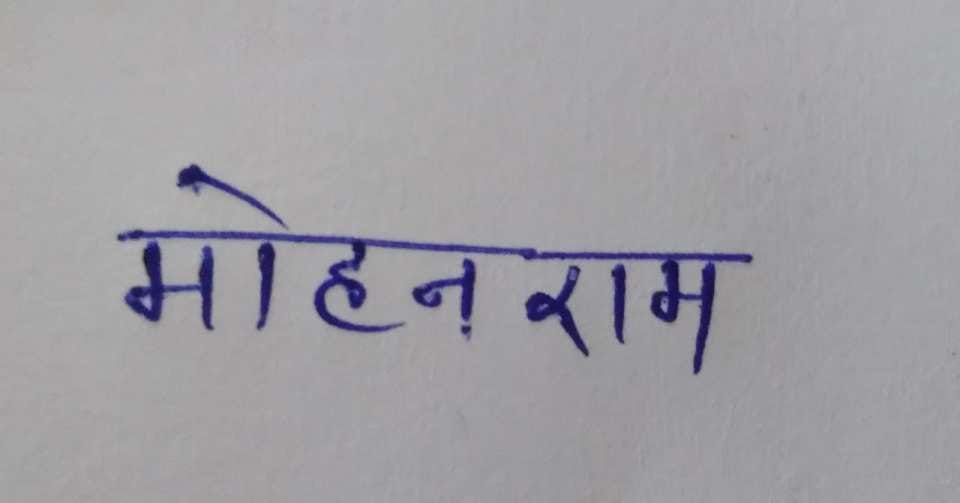 मोहन राम